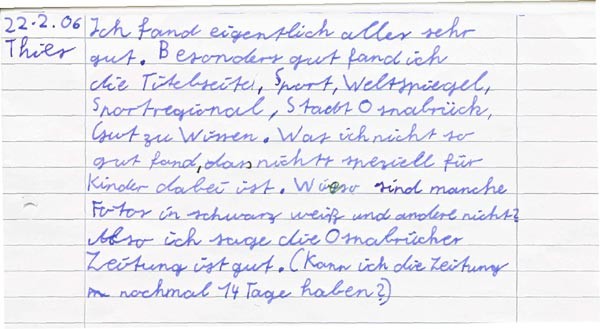 22.2.06 Ich fand eigentlich alles sehr
Thies gut. Besonders gut fand ich
die Titelseite, Sport, Weltspiegel,
Sportregional, Stadt Osnabrück,
Gut zu Wissen. Was ich nicht so
gut fand, dass nichts speziell für
Kinder dabei ist. Wieso sind manche
Fotos in schwarz weiß und andere nicht?
Also ich sage die Osnabrücher
Zeitung ist gut. (Kann ich die Zeitung
nochmal 14 Tage haben?)